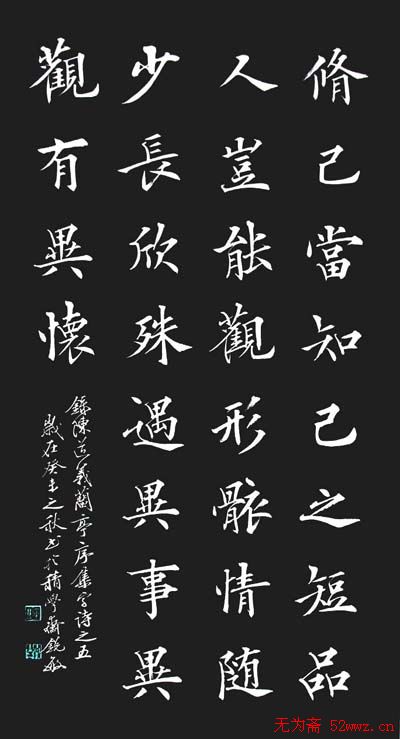 脩己當知己之短品
人豈能觀形骸情随
少長欣殊遇異事異
觀有異懷
錄陳道義蘭亭序集字詩之五
歲在癸未之秋書於學齋銳敏
无为斋 52wwz.cn